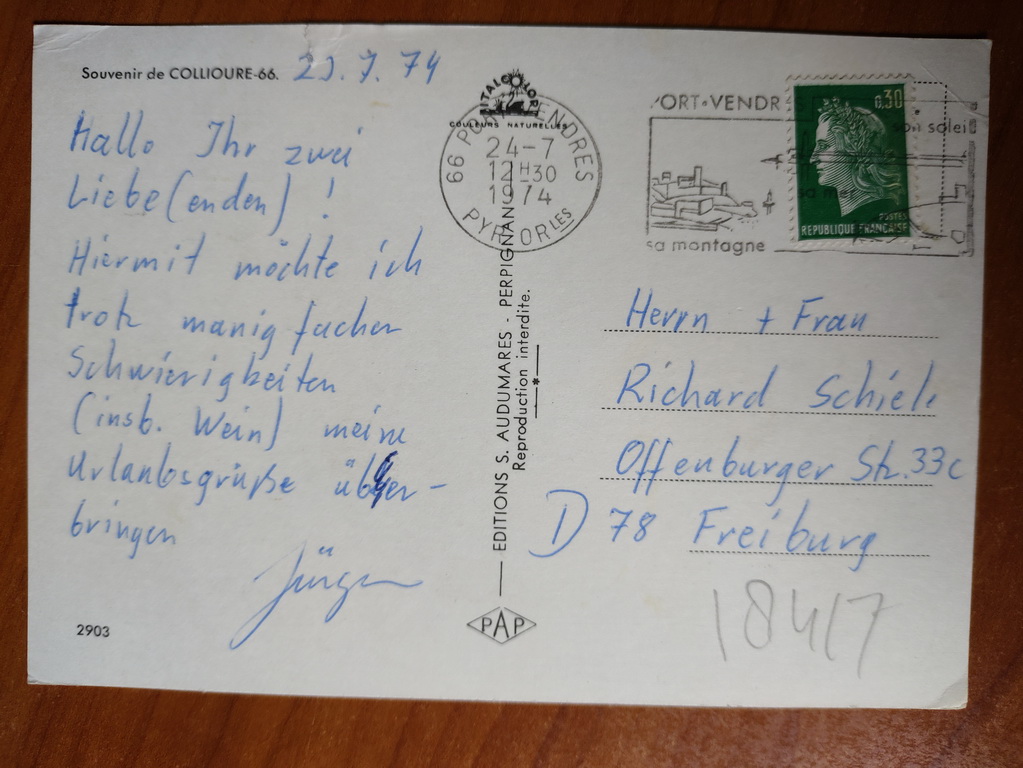 Souvenir de COLLIOURE-66.
23.7.74
Hallo Ihr zwei
Liebe(enden)!
Hiermit möchte ich
trotz manigfacher
Schwierigkeiten
(insb. Wein) meine
Urlaubsgrüße über-
bringen
Jürgen
2903
VITALCOLOR
COULEURS NATURELLES
EDITIONS S. AUDUMARES - PERPIGNAN
Reproduction interdite.
*
PAP
66 PORT-VENDRES
24-7
12H30
1974
PYR. ORLES
PORT-VENDRES
son soleil
sa mer
sa montagne
0,30
POSTES
REPUBLIQUE FRANCAISE
Herrn + Frau
Richard Schiele
Offenburger Str. 33c
D 78 Freiburg
18417